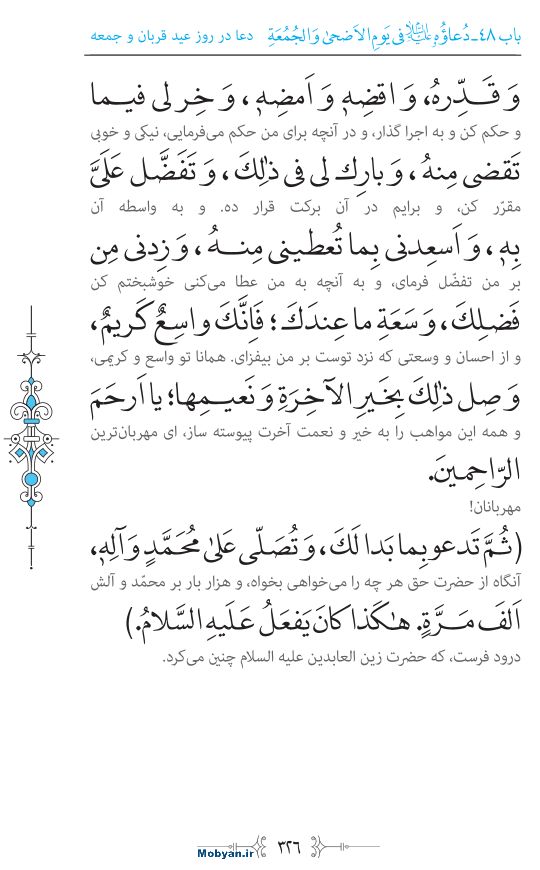 باب ۴۸ـ دُعاؤُهُ علیه‌السلام فى يَومِ الاَضحىٰ وَ الجُمُعَةِ دعا در روز عید قربان و جمعه
وَ قَـدِّرهُ، وَ اقضِهِ وَ اَمضِهِ، وَ خِر لى فيـما
و حکم کن و به اجرا گذار، و در آنچه برای من حکم می‌فرمایی، نیکی و خوبی
تَقضى مِنهُ، وَ بارِك لى فى ذٰلِكَ، وَ تَفَضَّل عَلَىَّ
مقرّر کن، و برایم در آن برکت قرار ده. و به واسطه آن
بِهِ، وَ اَسعِدنى بِما تُعطينى مِنـهُ، وَ زِدنى مِن
بر من تفضّل فرمای، و به آنچه به من عطا می‌کنی خوشبختم کن
فَضلِكَ، وَ سَعَةِ ما عِندَكَ؛ فَاِنَّكَ واسِعٌ كَريمٌ،
و از احسان و وسعتی که نزد توست بر من بیفزای. همانا تو واسع و کریمی،
وَ صِل ذٰلِكَ بِخَيرِ الآخِرَةِ وَ نَعيـمِها؛ يا اَرحَمَ
و همه این مواهب را به خیر و نعمت آخرت پیوسته ساز، ای مهربان‌ترین
الرّاحِميـنَ.
مهربانان!
(ثُمَّ تَدعو بِما بَدا لَكَ، وَ تُصَلّى عَلىٰ مُحَمَّدٍ وَ آلِهِ،
آنگاه از حضرت حق هر چه را می‌خواهی بخواه، و هزار بار بر محمّد و آلش
اَلفَ مَـرَّةٍ. هٰكَذا كانَ يَفعَلُ عَلَيهِ السَّلامُ.)
درود فرست، که حضرت زین العابدین علیه السلام چنین می‌کرد.
۳۲۶
Mobyan.ir